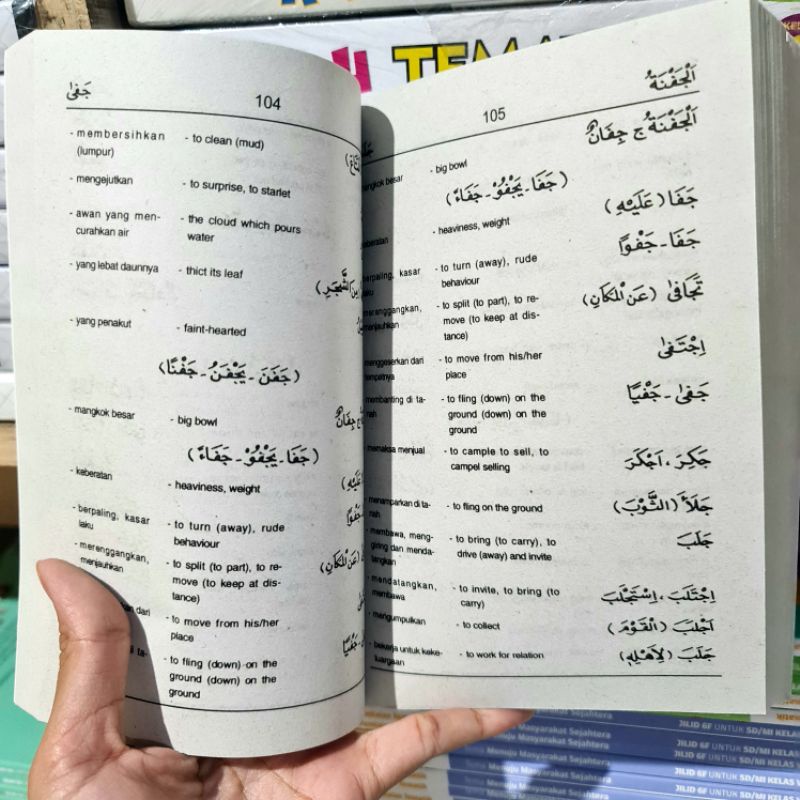 TEMA
جَفَىٰ
104
- membersihkan (lumpur) - to clean (mud)
- mengejutkan - to surprise, to starlet
- awan yang men- - the cloud which pours
curahkan air water
- yang lebat daunnya - thict its leaf
مِنَ الشَّجَرِ)
- yang penakut - faint-hearted
(جَفَنَ - يَجْفَنُ - جَفْنًا)
- mangkok besar - big bowl
ج جِفَانٌ
(جَفَا - يَجْفُوْ - جَفَاءً)
- keberatan - heaviness, weight
عَلَيْهِ)
- berpaling, kasar - to turn (away), rude
laku behaviour
جَفْوًا
- merenggangkan, - to split (to part), to re-
menjauhkan move (to keep at dis-
tance)
(عَنِ الْمَكَانِ)
dari - to move from his/her
place
ta- - to fling (down) on the
ground (down) on the
ground
جَفْيًا
105
اَلْجَفْنَةُ
mangkok besar - big bowl اَلْجَفْنَةُ ج جِفَانٌ
(جَفَا - يَجْفُوْ - جَفَاءً)
keberatan - heaviness, weight جَفَا (عَلَيْهِ)
berpaling, kasar - to turn (away), rude جَفَا - جَفْوًا
laku behaviour
merenggangkan, - to split (to part), to re- تَجَافَىٰ (عَنِ الْمَكَانِ)
menjauhkan move (to keep at dis-
tance)
menggeserkan dari - to move from his/her اِجْتَفَىٰ
tempatnya place
membanting di ta- - to fling (down) on the جَفَىٰ - جَفْيًا
nah ground (down) on the
ground
memaksa menjual - to cample to sell, to جَكِرَ ، اَجْكَرَ
campel selling
- menamparkan di ta- - to fling on the ground جَلَأَ (الثَّوْبَ)
nah
- membawa, meng- - to bring (to carry), to جَلَبَ
giring dan menda- drive (away) and invite
tangkan
- mendatangkan, - to invite, to bring (to اِجْتَلَبَ ، اِسْتَجْلَبَ
membawa carry)
- mengumpulkan - to collect اَجْلَبَ (الْقَوْمَ)
- bekerja untuk keke- - to work for relation جَلَبَ (لِاَهْلِهِ)
luargaan
Menuju Masyarakat Sejahtera JILID 6F UNTUK SD/MI KELAS
Menuju Masyarakat Sejahtera JILID 6F UNTUK SD/MI KELAS
Menuju Masyarakat Sejahtera JILID 6F UNTUK SD/MI KELAS